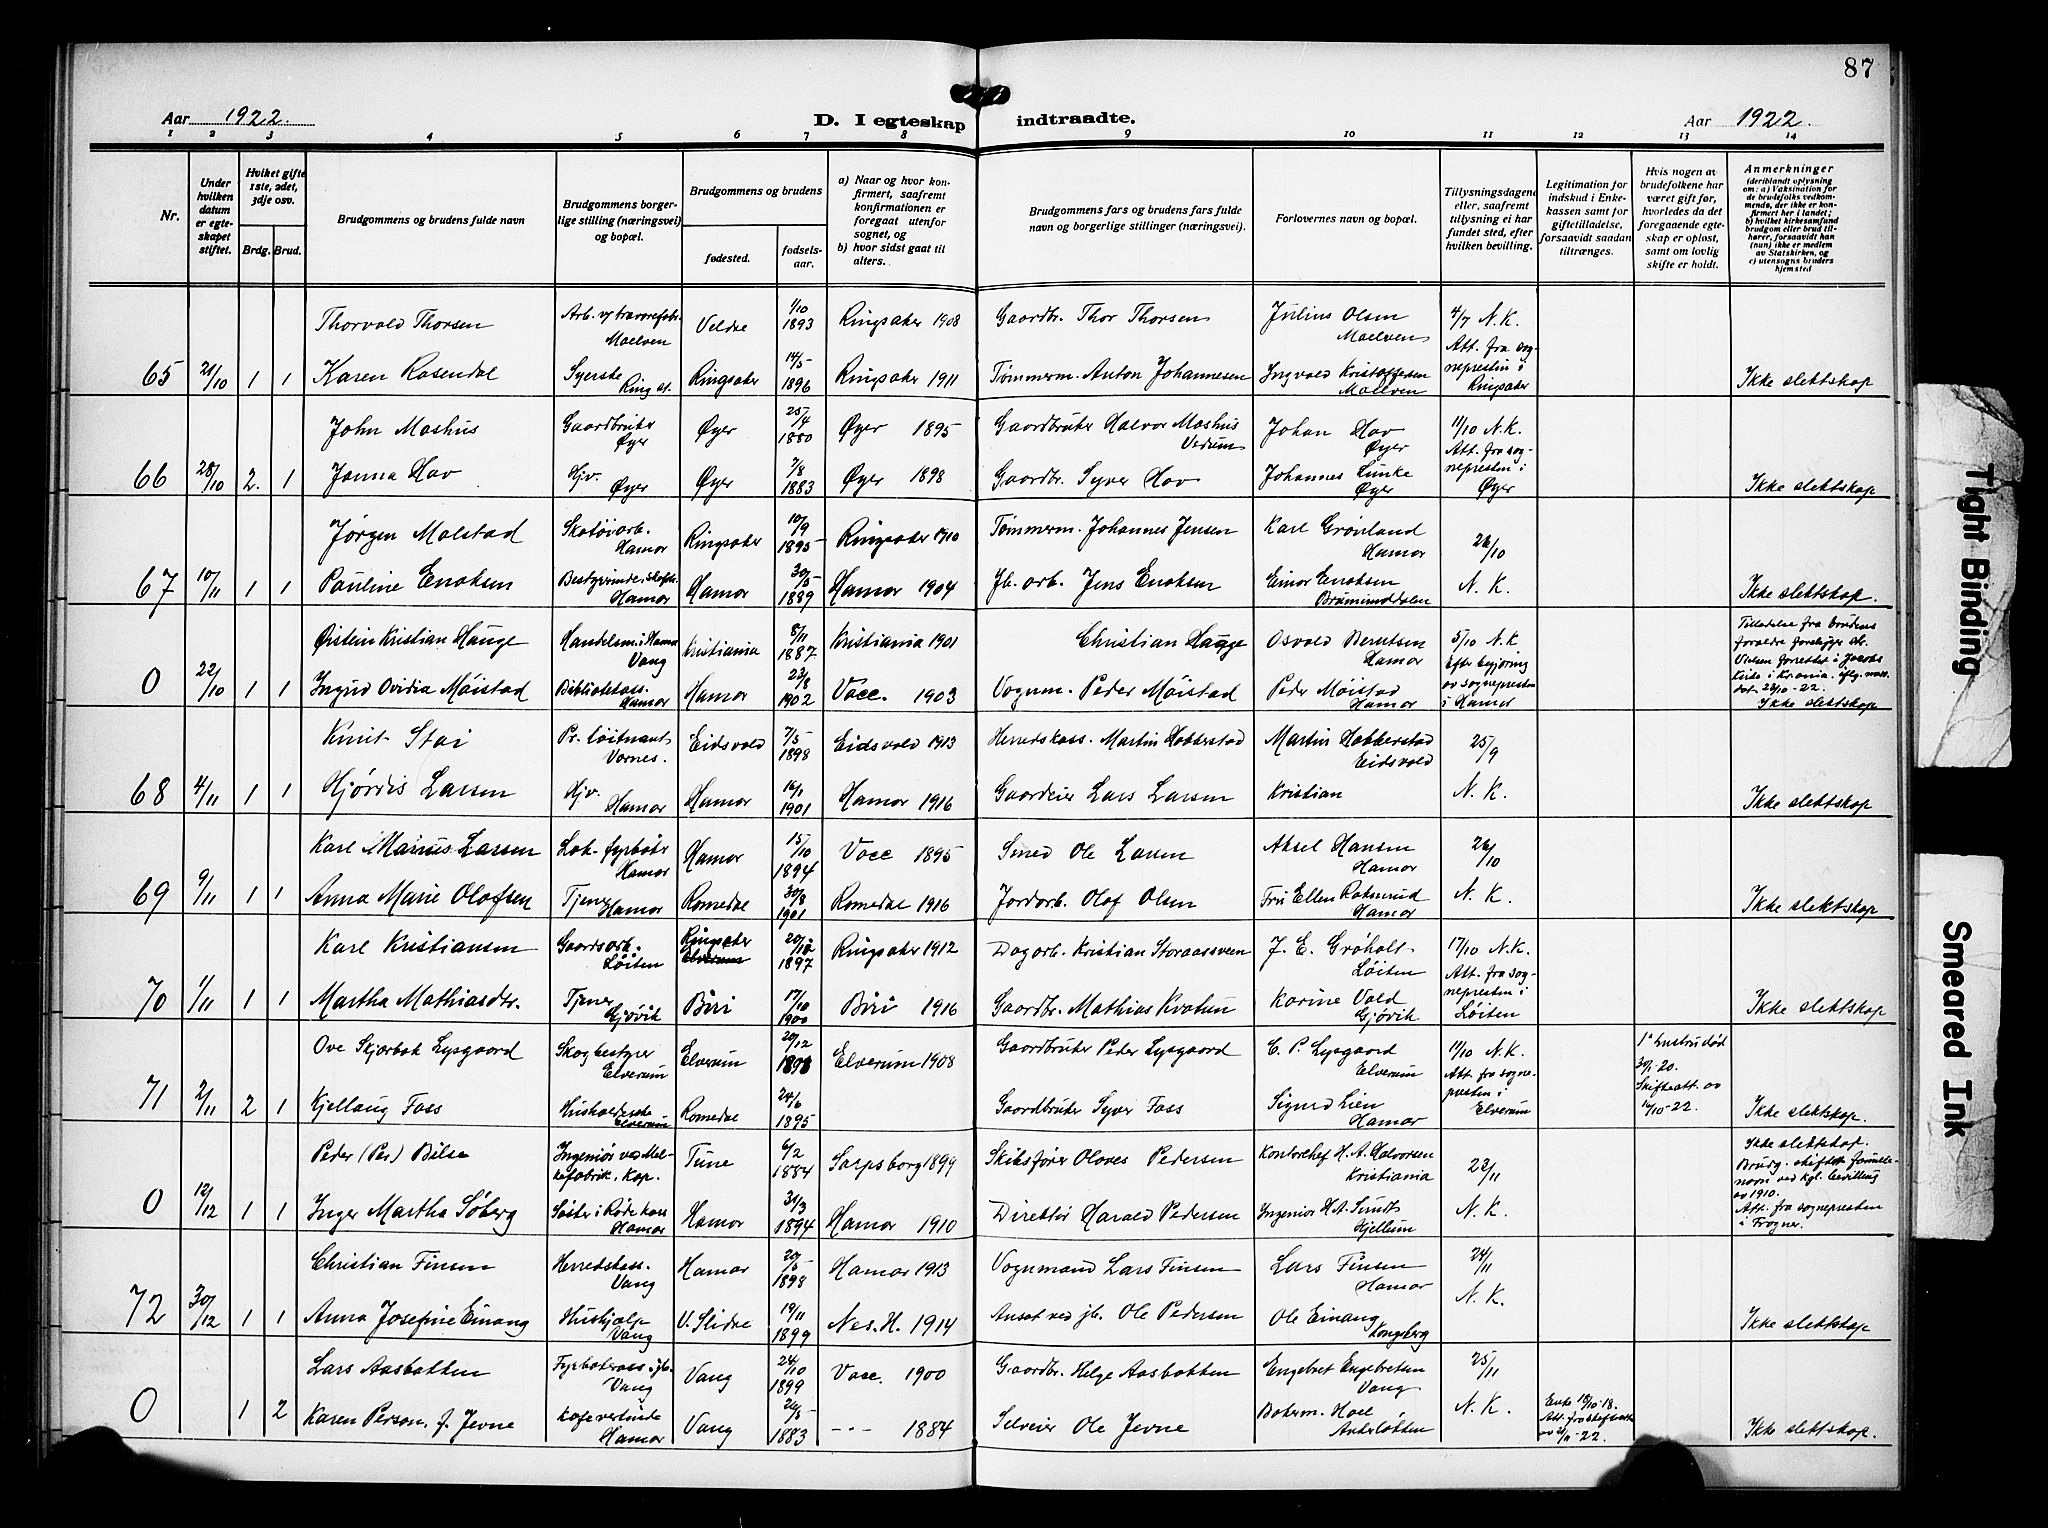 87
Aar 1922. D. I egteskap indtraadte. Aar 1922.
1 2 3 4 5 6 7 8 9 10 11 12 13 14
Nr.
Under hvilken datum er egteskapet stiftet.
Hvilket gifte 1ste, 2det, 3dje osv.
Brdg. Brud.
Brudgommens og brudens fulde navn
Brudgommens borgerlige stilling (næringsvei) og bopæl.
Brudgommens og brudens
fødested.
fødselsaar.
a) Naar og hvor konfirmert, saafremt konfirmationen er foregaat utenfor sognet, og
b) hvor sidst gaat til alters.
Brudgommens fars og brudens fars fulde navn og borgerlige stillinger (næringsvei).
Forlovernes navn og bopæl.
Tillysningsdagene eller, saafremt tillysning ei har fundet sted, efter hvilken bevilling.
Legitimation for indskud i Enkekassen samt for giftetilladelse, forsaavidt saadan tiltrænges.
Hvis nogen av brudefolkene har været gift før, hvorledes da det foregaaende egteskap er opløst, samt om lovlig skifte er holdt.
Anmerkninger
(deriblandt oplysning om: a) Vaksination for de brudefolks vedkommende, der ikke er konfirmert her i landet; b) hvilket kirkesamfund brudgom eller brud tilhører, forsaavidt han (hun) ikke er medlem av Statskirken, og c) utensogns bruders hjemsted
Thorvald Thorsen Moelven Veldre 1/10 1893 Ringsaker 1908 Gaardbr. Thor Thorsen Julius Olsen Moelven 4/7 N.K.
65 21/10 1 1 Karen Rosendal Syerske Ringsaker 14/5 1896 Ringsaker 1911 Tømmerm. Anton Johannesen Ingvald Kristoffersen Moelven Att. fra sognepresten i Ringsaker Ikke slektskap
John Moshus Gaardbruker Øyer Øyer 25/4 1880 Øyer 1895 Gaardbruker Halvor Moshus Johan Hov Øyer 11/10 N.K.
66 28/10 2. 1 Janna Hov Hjv. Øyer Øyer 7/8 1883 Øyer 1898 Gaardbr. Syver Hov Johannes Lunke Øyer Att. fra sognepresten i Øyer Ikke slektskap
Jørgen Molstad Skotøiarb. Hamar Ringsaker 10/9 1895 Ringsaker 1910 Tømmerm. Johannes Jensen Karl Grønland Hamar 26/10
67 10/11 1 1 Pauline Enoksen Hamar Hamar 30/5 1889 Hamar 1904 Jb. arb. Jens Enoksen Einar Enoksen Brumunddalen N.K. Ikke slektskap.
Øistein Kristian Hauge Handelsm. i Hamar Vang Kristiania 8/11 1887 Kristiania 1901 Christian Hauge Osvald Berntsen Hamar 5/10 N.K.
0 22/10 1 1 Ingrid Ovidia Moistad Hamar Hamar 23/8 1902 Vacc. 1903 Vognm. Peder Moistad Peder Moistad Hamar av sognepresten i Hamar Ikke slektskap
Knut Stai Pr. løitnant Eidsvold 7/5 1898 Eidsvold 1913 Herredskass. Martin Habberstad Martin Habberstad Eidsvold 25/9
68 4/11 1 1 Hjørdis Larsen Hjv. Hamar Hamar 16/1 1901 Hamar 1916 Gaardeier Lars Larsen Kristian N.K. Ikke slektskap
Karl Marius Larsen Lok. fyrbøter Hamar Hamar 15/10 1894 Vacc 1895 Smed Ole Larsen Aksel Hansen Hamar 26/10
69 9/11 1 1 Anna Marie Olafsen Tjener Hamar Romedal 30/8 1901 Romedal 1916 Jordarb. Olaf Olsen Fru Ellen Hamar N.K. Ikke slektskap
Karl Kristiansen Gaardsarb. Løiten Ringsaker Elverum 1897 Ringsaker 1912 Dagarb. Kristian Storaasveen J. E. Grøholt Løiten 17/10 N.K.
70 1/11 1 1 Martha Mathiasdtr. Tjener Gjøvik Biri 17/10 1900 Biri 1916 Gaardbr. Mathias Kvatun Karine Vold Gjøvik Att. fra sognepresten i Løiten Ikke slektskap
Ove Skjærbæk Lysgaard Skogbestyrer Elverum Elverum 29/12 Elverum 1908 Gaardbruker Peder Lysgaard C. P. Lysgaard Elverum 11/10 N.K. 1ste hustru død 30/1-20.
71 2/11 2 1 Kjellaug Foss Elverum Romedal 24/6 1895 Gaardbruker Syver Foss Sigurd Lien Hamar Att. fra sognepresten i Elverum Skifteatt. av 16/10-22. Ikke slektskap.
Peder (Per) Bilse Tune 6/2 1884 Sarpsborg 1899 Skibsfører Olaves Pedersen Kontorchef H. A. Halvorsen Kristiania 22/11 Ikke slektskap.
0 12/12 1 1 Inger Martha Søberg Søster i Røde kors Hamar Hamar 31/3 1894 Hamar 1910 Direktør Harald Pedersen Ingeniør H. A. Sundt Hjellum N.K. Att. fra sognepresten i Frogner.
Christian Finsen Herredskass. Vang Hamar 1898 Hamar 1913 Vognmand Lars Finsen Lars Finsen Hamar 24/11
72 30/12 1 1 Anna Josefine Einang Hushjelp Vang V. Slidre 19/11 1899 Nes. H. 1914 Ansat ved jb. Ole Pedersen Ole Einang Kongsberg N.K. Ikke slektskap
Lars Aasbakken Vang Vang 24/10 1899 Vacc. 1900 Gaardbr. Helge Aasbakken Engebret Engebretsen Vang 25/11
0 1 2 Karen Person, f. Jevne Hamar Vang 26/5 1883 -"- 1884 Selveier Ole Jevne N.K. Enke 18/10-18. Ikke slektskap.
Tight Binding
Smeared Ink